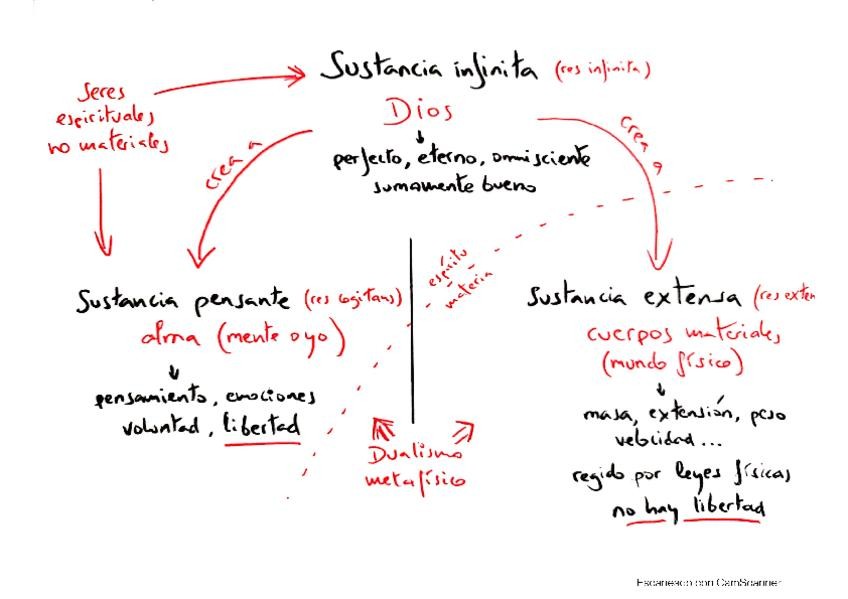 Sustancia infinita (res infinita)
Dios
perfecto, eterno, omnisciente
sumamente bueno
Seres
espirituales
no materiales
crea a
crea a
espíritu
materia
Sustancia pensante (res cogitans)
alma (mente o yo)
pensamiento, emociones
voluntad, libertad
Dualismo
metafísico
Sustancia extensa (res exten
cuerpos materiales
(mundo físico)
masa, extensión, peso
velocidad...
regido por leyes físicas
no hay libertad
Escaneado con CamScanner